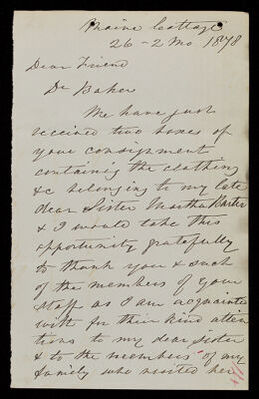 Maine Cottage
26 - 2 Mo 1878
Dear Friend
Dr Baker
We have just
received two boxes of
your consignment
containing the clothing
&c belonging to my late
dear Sister Martha
& I would take this
opportunity gratefully
to thank you & such
of the members of your
staff as I am acquainted
with for their kind atten
tions to my dear Sister
& to the members of my
family who visited her